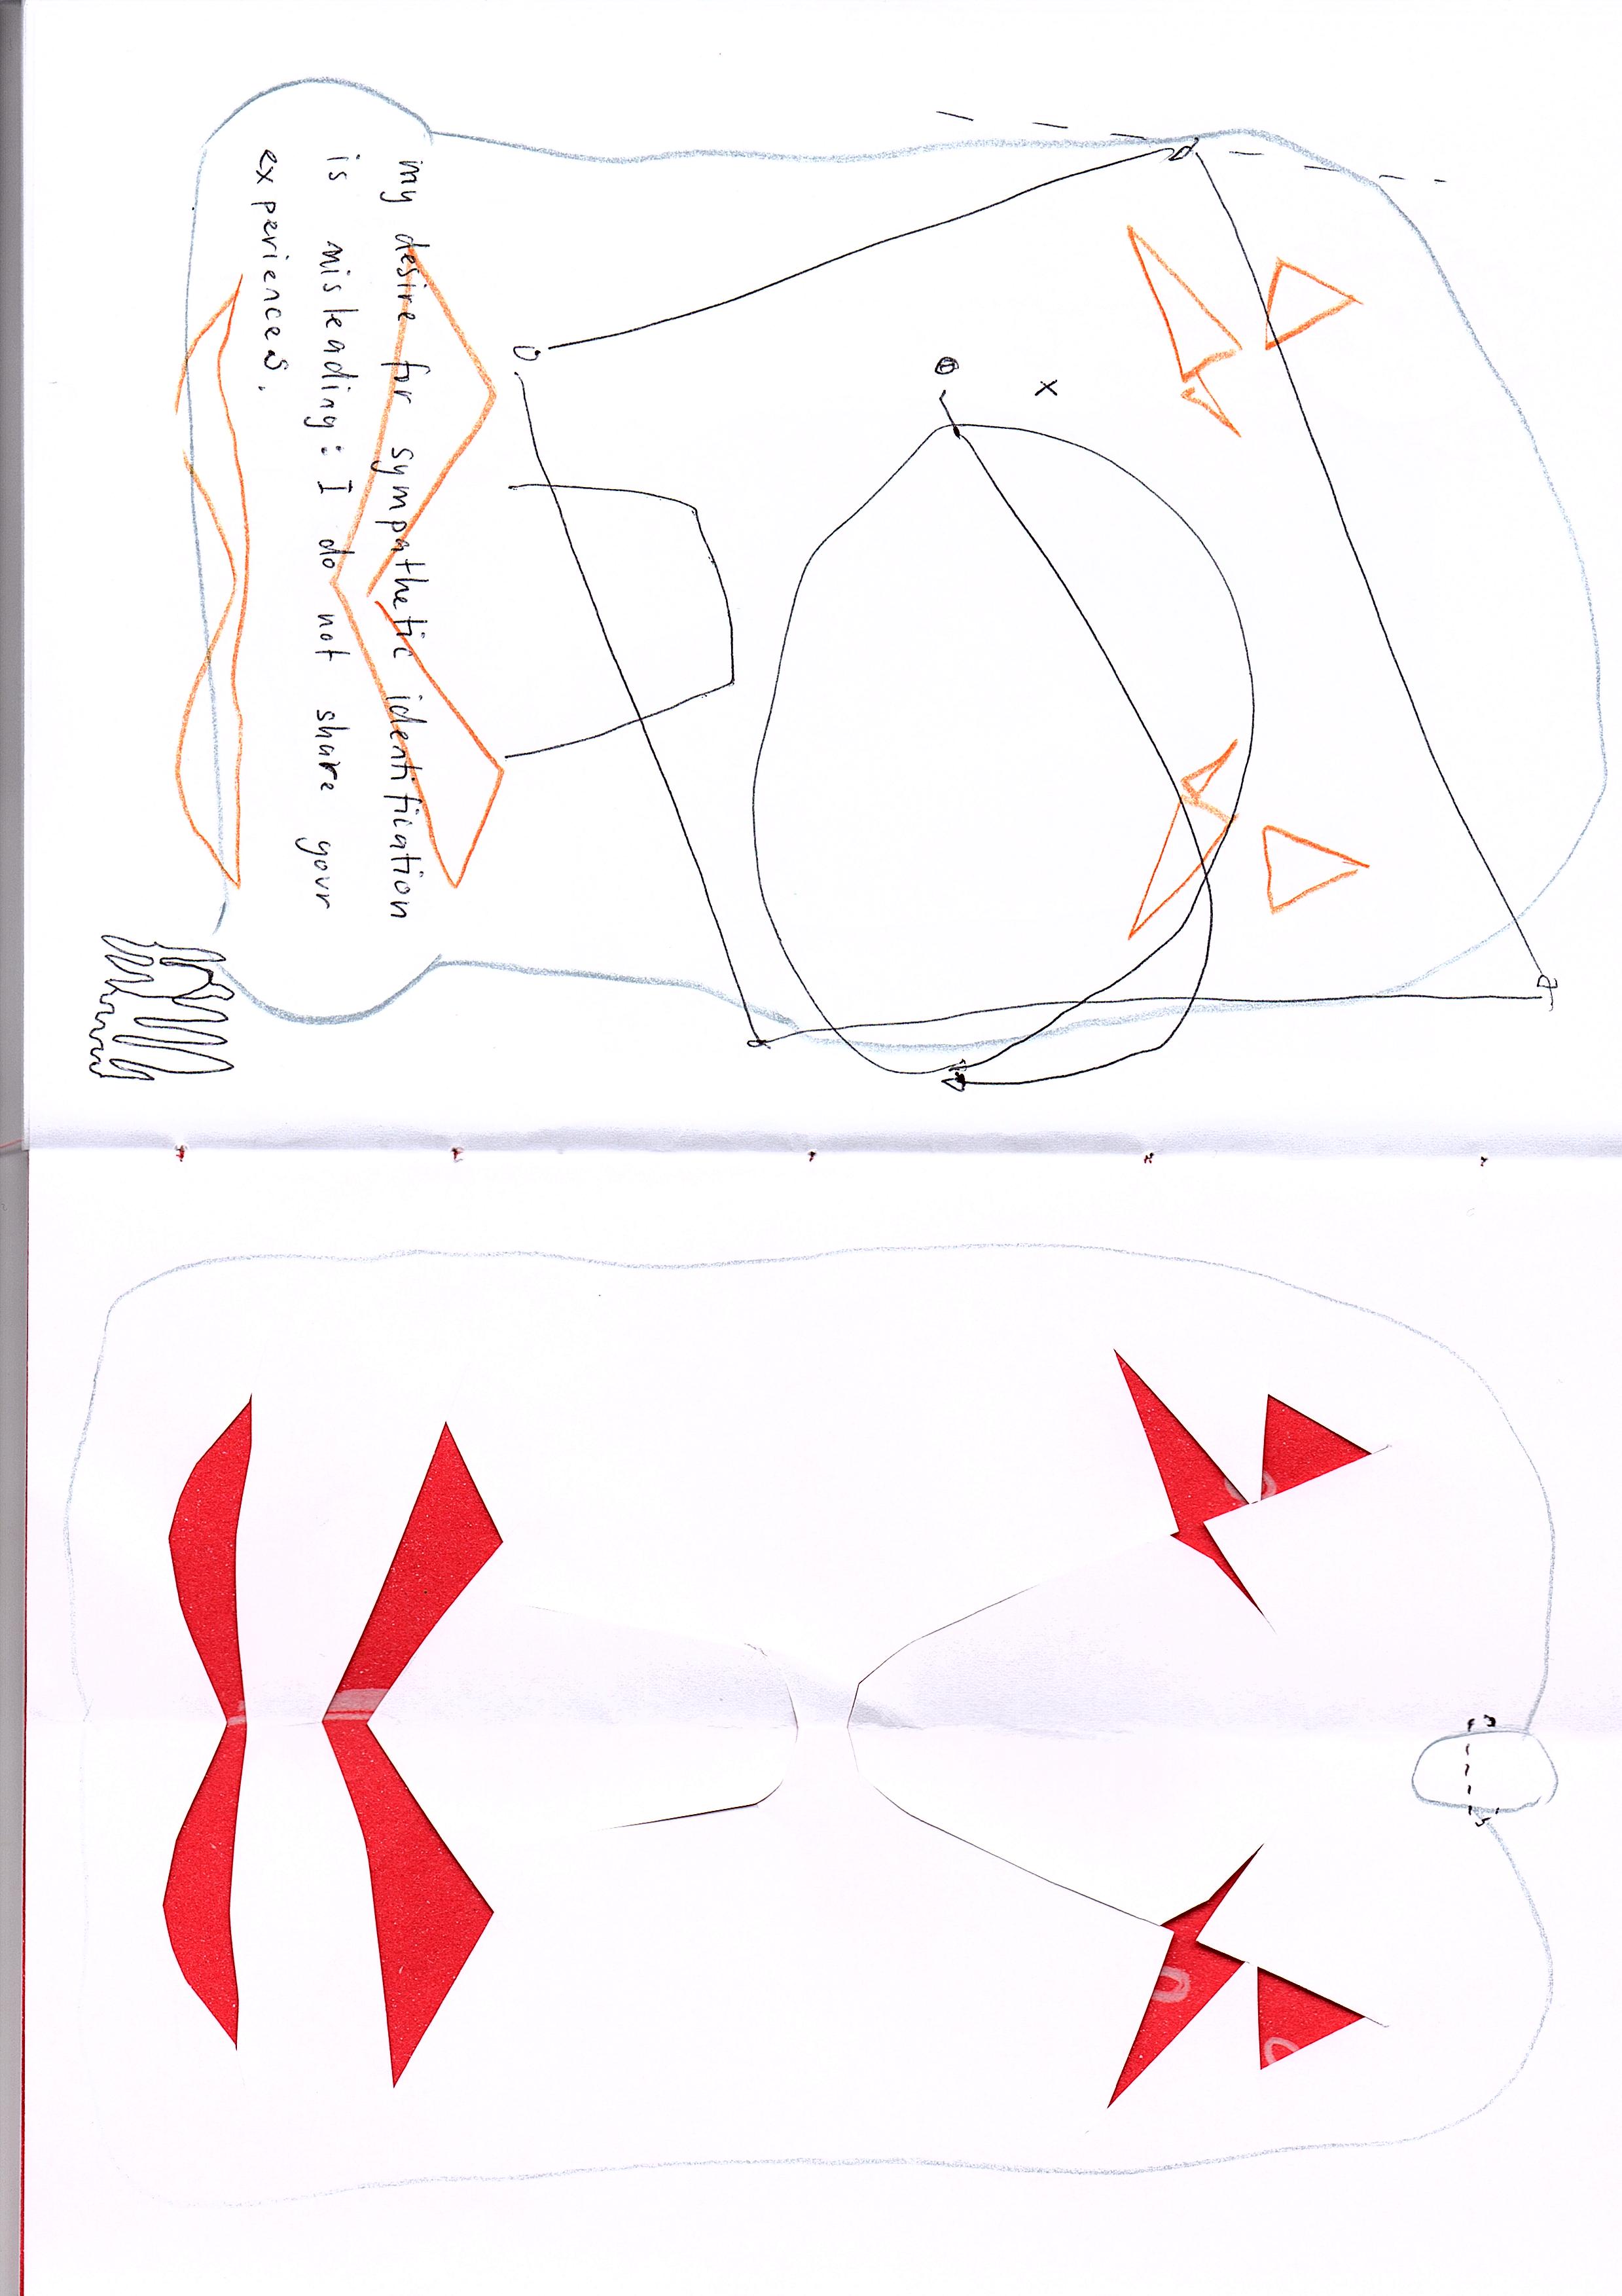 my desire for sympathetic identification
is misleading: I do not share your
experiences.